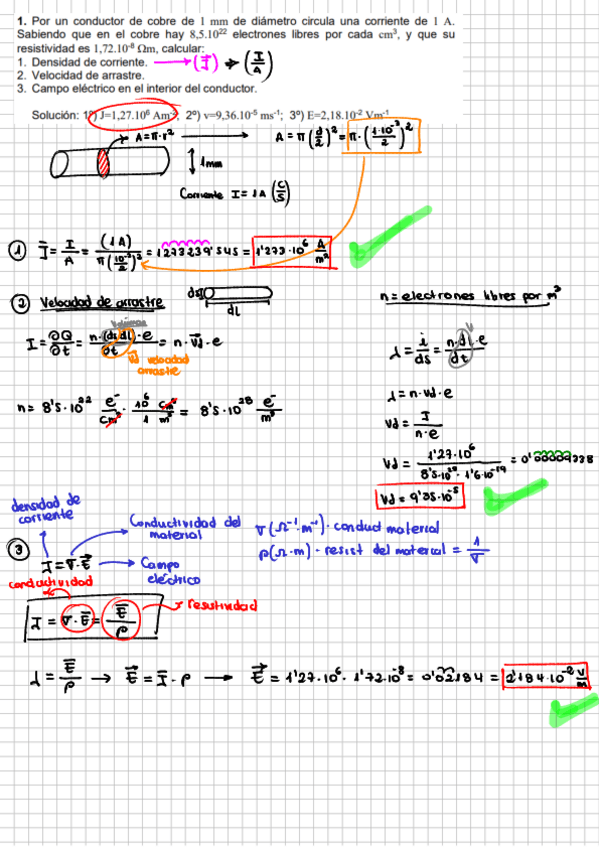 1. Por un conductor de cobre de 1 mm de diámetro circula una corriente de 1 A.
Sabiendo que en el cobre hay 8,5.10²² electrones libres por cada cm³, y que su
resistividad es 1,72.10⁻⁸ Ωm, calcular:
1. Densidad de corriente. → (J⃗) → (I/A)
2. Velocidad de arrastre.
3. Campo eléctrico en el interior del conductor.
Solución: 1º) J=1,27.10⁶ Am⁻²; 2º) v=9,36.10⁻⁵ ms⁻¹; 3º) E=2,18.10⁻² Vm⁻¹
A=π·r² → A = π(d/2)² = π·(1·10⁻³/2)²
1mm
Corriente I = 1A (C/S)
① J⃗ = I/A = (1A)/π(10⁻³/2)² = 1273239'545 = 1'273·10⁶ A/m²
② Velocidad de arrastre
ds
dL
n = electrones libres por m³
Volumen
I = ∂Q/∂t = n·(ds·dL)·e/∂t = n·V⃗d·e
V⃗d velocidad
arrastre
J = i/ds = n·dL·e/dt
V
n = 8'5·10²² e⁻/cm³ · 10⁶ cm³/1 m³ = 8'5·10²⁸ e⁻/m³
J = n·vd·e
Vd = J/n·e
Vd = 1'27·10⁶/8'5·10²⁸·1'6·10⁻¹⁹ = 0'00009338
Vd = 9'35·10⁻⁵
densidad de
corriente
③
Conductividad del
material
J = σ·E⃗
Campo
eléctrico
σ(Ω⁻¹·m⁻¹)·conduct material
ρ(Ω·m)·resist del material = 1/σ
conductividad
J = σ·E⃗ = E⃗/ρ
resistividad
J = E⃗/ρ → E⃗ = J⃗·ρ → E⃗ = 1'27·10⁶·1'72·10⁻⁸ = 0'02184 = 2'184·10⁻² V/m